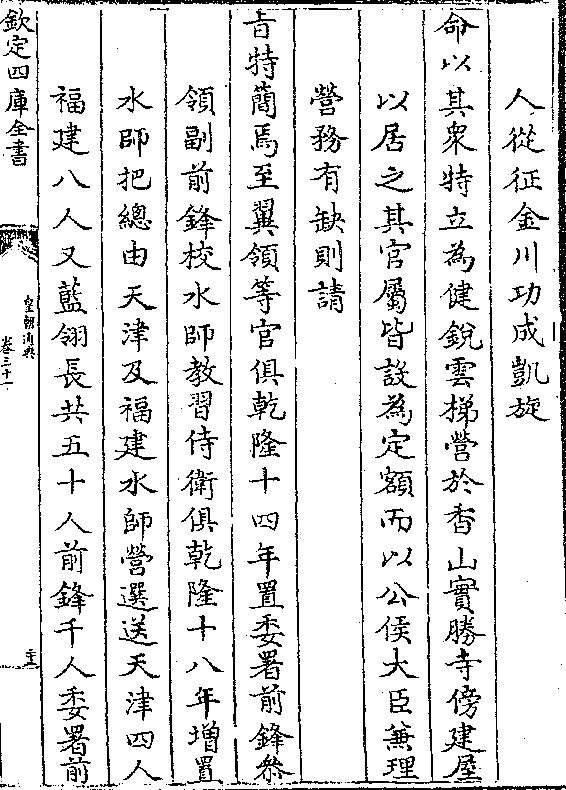 人從征金川功成凱旋
命以其衆特立為健銳雲梯營於香山實勝寺傍建屋
以居之其官屬皆設為定額而以公侯大臣兼理
營務有缺則請
㫖特簡焉至翼領等官俱乾隆十四年置委署前鋒叅
領副前鋒校水師教習侍衛俱乾隆十八年增置
水師把總由天津及福建水師營選送天津四人
福建八人又藍翎長共五十人前鋒千人委署前
欽定四庫全書
皇朝通典
卷三十一